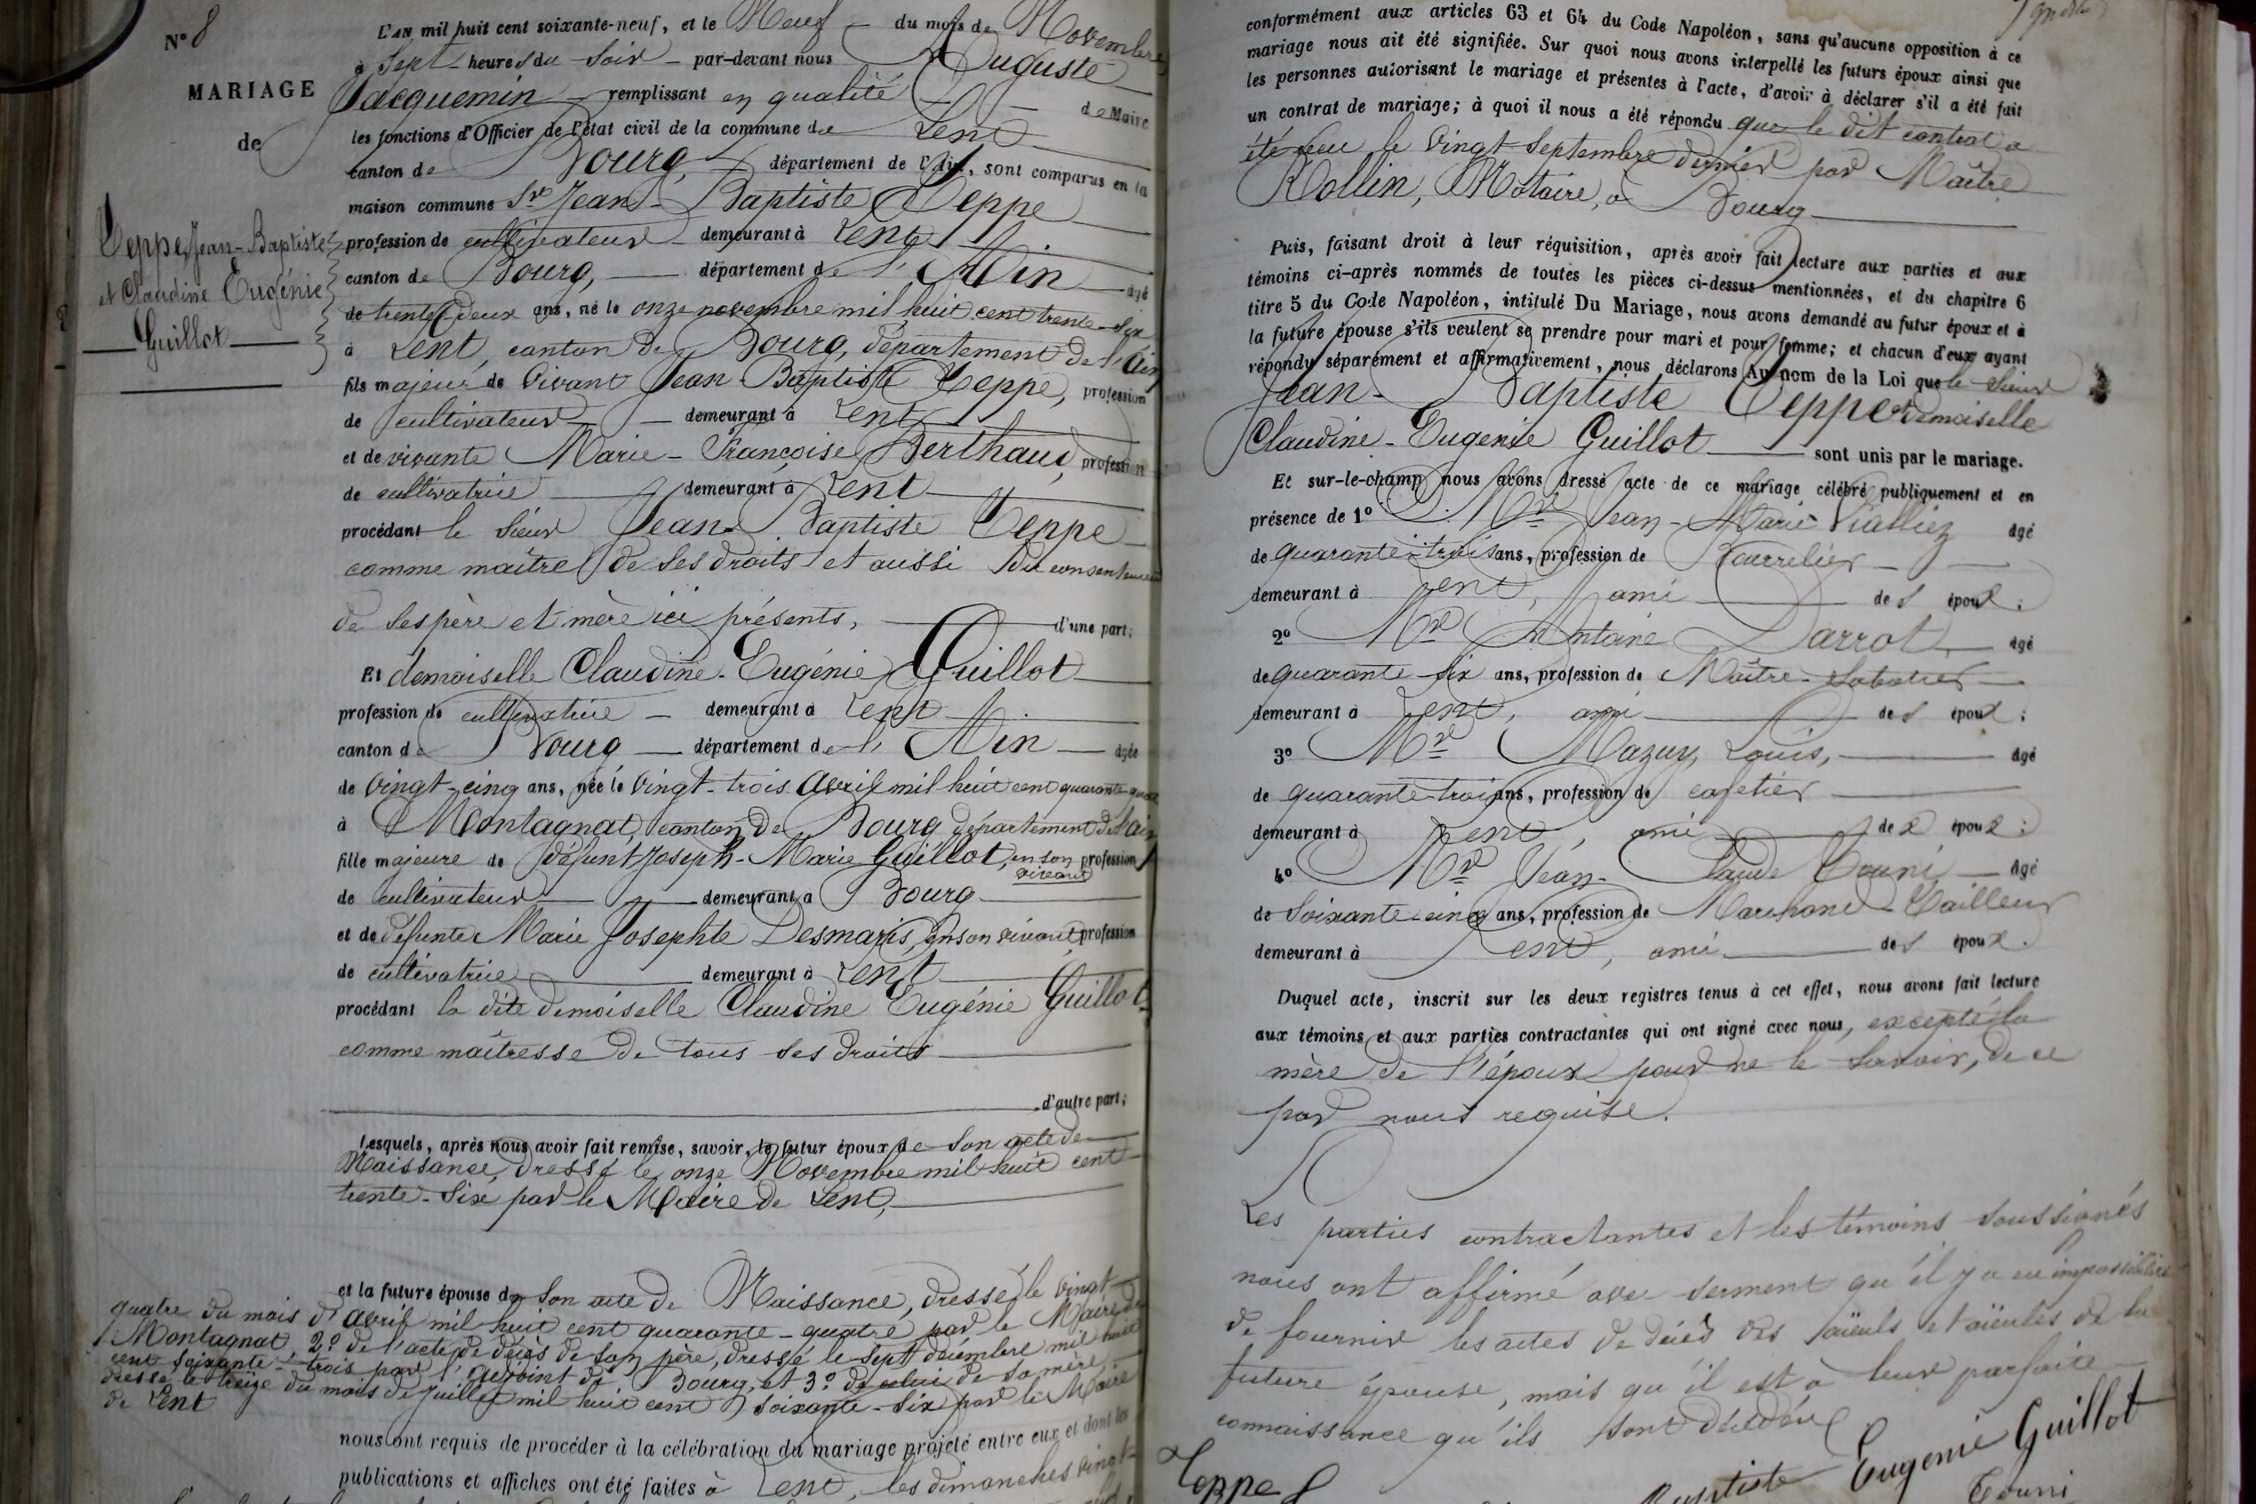 N° 8
MARIAGE
de
Teppe, Jean-Baptiste
et Claudine Eugénie
Guillot
L'an mil huit cent soixante-neuf, et le Neuf du mois de Novembre
à Sept heures du Soir par-devant nous Auguste
Jacquemin remplissant en qualité de Maire
les fonctions d'Officier de l'état civil de la commune de Lent
canton de Bourg, département de l'Ain, sont comparus en la
maison commune Sr Jean-Baptiste Teppe
profession de cultivateur demeurant à Lent
canton de Bourg, département de l'Ain âgé
de trente-deux ans, né le onze novembre mil huit cent trente-six
à Lent, canton de Bourg, département de l'Ain
fils majeur de vivant Jean-Baptiste Teppe, profession
de cultivateur demeurant à Lent
et de vivante Marie-Françoise Berthaud, profession
de cultivatrice demeurant à Lent
procédant le sieur Jean-Baptiste Teppe
comme maître de ses droits et aussi du consentement
de ses père et mère ici présents, d'une part;
Et demoiselle Claudine-Eugénie Guillot
profession de cultivatrice demeurant à Lent
canton de Bourg département de l'Ain âgée
de vingt-cinq ans, née le vingt-trois avril mil huit cent quarante-quatre
à Montagnat, canton de Bourg département de l'Ain
fille majeure de défunt Joseph-Marie Guillot, en son vivant profession
de cultivateur demeurant à Bourg
et de défunte Marie Josephte Desmaris, en son vivant, profession
de cultivatrice demeurant à Lent
procédant la dite demoiselle Claudine Eugénie Guillot
comme maîtresse de tous ses droits
d'autre part;
Lesquels, après nous avoir fait remise, savoir, le futur époux de son acte de
Naissance, dressé le onze Novembre mil huit cent
trente-six par le Maire de Lent,
et la future épouse de son acte de Naissance, dressé le vingt-
quatre du mois d'avril mil huit cent quarante-quatre par le Maire de
Montagnat, 2° de l'acte de décès de son père, dressé le sept décembre mil huit
cent soixante-trois par l'adjoint de Bourg, et 3° de celui de sa mère,
dressé le treize du mois de juillet mil huit cent soixante-six par le Maire
de Lent
nous ont requis de procéder à la célébration du mariage projeté entre eux et dont les
publications et affiches ont été faites à Lent, les dimanches vingt-
conformément aux articles 63 et 64 du Code Napoléon, sans qu'aucune opposition à ce
mariage nous ait été signifiée. Sur quoi nous avons interpellé les futurs époux ainsi que
les personnes autorisant le mariage et présentes à l'acte, d'avoir à déclarer s'il a été fait
un contrat de mariage; à quoi il nous a été répondu que le dit contrat a
été reçu le vingt Septembre dernier par Maître
Rollin, Notaire, à Bourg
Puis, faisant droit à leur réquisition, après avoir fait lecture aux parties et aux
témoins ci-après nommés de toutes les pièces ci-dessus mentionnées, et du chapitre 6
titre 5 du Code Napoléon, intitulé Du Mariage, nous avons demandé au futur époux et à
la future épouse s'ils veulent se prendre pour mari et pour femme; et chacun d'eux ayant
répondu séparément et affirmativement, nous déclarons Au nom de la Loi que le sieur
Jean-Baptiste Teppe et demoiselle
Claudine-Eugenie Guillot sont unis par le mariage.
Et sur-le-champ nous avons dressé acte de ce mariage célébré publiquement et en
présence de 1° Mr Jean-Marie Vialliez âgé
de quarante-trois ans, profession de Bourrelier
demeurant à Lent, ami des époux;
2° Mr Antoine Darrot, âgé
de quarante-six ans, profession de Maître-sabotier
demeurant à Lent, ami des époux;
3° Mr Mazuy, Louis, âgé
de quarante-trois ans, profession de cafetier
demeurant à Lent, ami des époux;
4° Mr Jean-Claude Tourni âgé
de soixante-cinq ans, profession de Marchand-Tailleur
demeurant à Lent, ami des époux.
Duquel acte, inscrit sur les deux registres tenus à cet effet, nous avons fait lecture
aux témoins et aux parties contractantes qui ont signé avec nous, excepté la
mère de l'époux pour ne le savoir, de ce
par nous requise.
Les parties contractantes et les témoins soussignés
nous ont affirmé avec serment qu'il y a eu impossibilité
de fournir les actes de décès des aïeuls et aïeules de la
future épouse, mais qu'il est à leur parfaite
connaissance qu'ils sont décédés
Teppe Baptiste Eugenie Guillot
Tourni